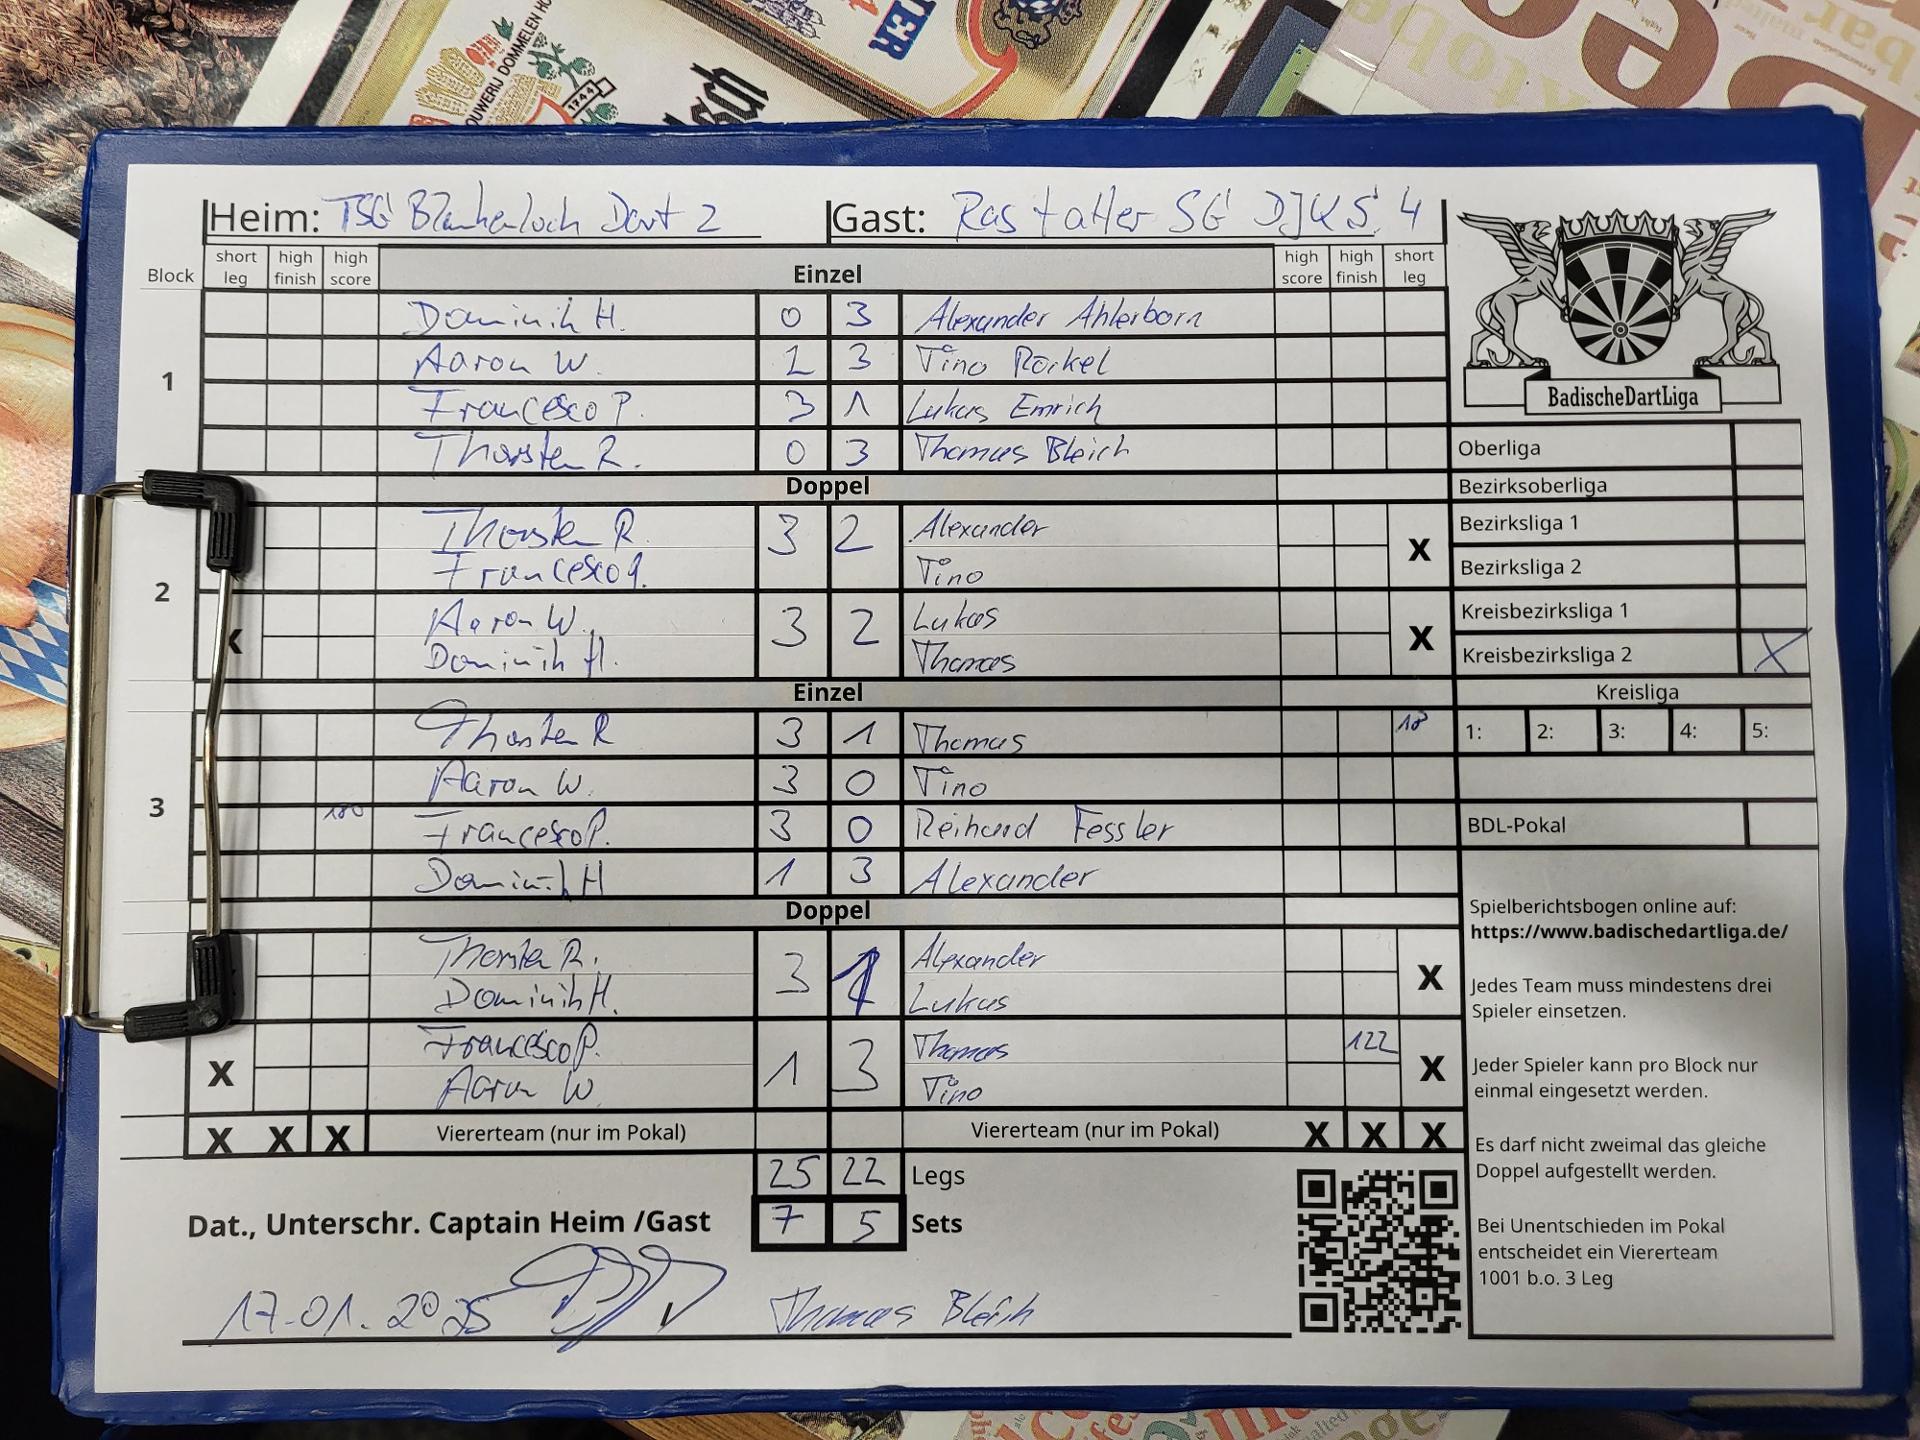 BROUWERIJ DOMMELEN HO
1744
Heim: TSG Blankenloch Dart 2 Gast: Rastatter SG DJK S. 4
Block short leg high finish high score Einzel high score high finish short leg
1
Dominik H. 0 3 Alexander Ahlerborn
Aaron W. 1 3 Tino Rörkel
Francesco P. 3 1 Lukas Emrich
Thorsten R. 0 3 Thomas Bleich
Doppel
2
Thorsten R. 3 2 Alexander
Francesco P. Tino X
Aaron W. 3 2 Lukas
X Dominik H. Thomas X
Einzel
3
Thorsten R 3 1 Thomas 18
Aaron W. 3 0 Tino
180 Francesco P. 3 0 Reihard Fessler
Dominik H 1 3 Alexander
Doppel
Thorsten R. 3 1 Alexander
Dominik H. Lukas X
Francesco P. 1 3 Thomas 122
X Aaron W. Tino X
X X X Viererteam (nur im Pokal) Viererteam (nur im Pokal) X X X
25 22 Legs
Dat., Unterschr. Captain Heim /Gast 7 5 Sets
17.01.2025 Thomas Bleich
BadischeDartLiga
Oberliga
Bezirksoberliga
Bezirksliga 1
Bezirksliga 2
Kreisbezirksliga 1
Kreisbezirksliga 2 X
Kreisliga
1: 2: 3: 4: 5:
BDL-Pokal
Spielberichtsbogen online auf:
https://www.badischedartliga.de/
Jedes Team muss mindestens drei
Spieler einsetzen.
Jeder Spieler kann pro Block nur
einmal eingesetzt werden.
Es darf nicht zweimal das gleiche
Doppel aufgestellt werden.
Bei Unentschieden im Pokal
entscheidet ein Viererteam
1001 b.o. 3 Leg